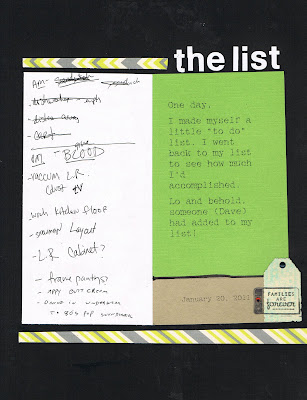 the list
AM -
PM - give BLOOD
- vaccum L.R.
dust TV
wash kitchen floor
- scrap Layout
- L.R. Cabinet?
- frame paintings
- APPLY BUTT CREAM
- DANCE IN UNDERWEAR
TO 80s POP SOUNDTRACK
One day.
I made myself a
little "to do"
list. I went
back to my list
to see how much
I'd
accomplished.
Lo and behold.
someone (Dave)
had added to my
list!
January 20, 2011
FAMILIES
ARE
forever